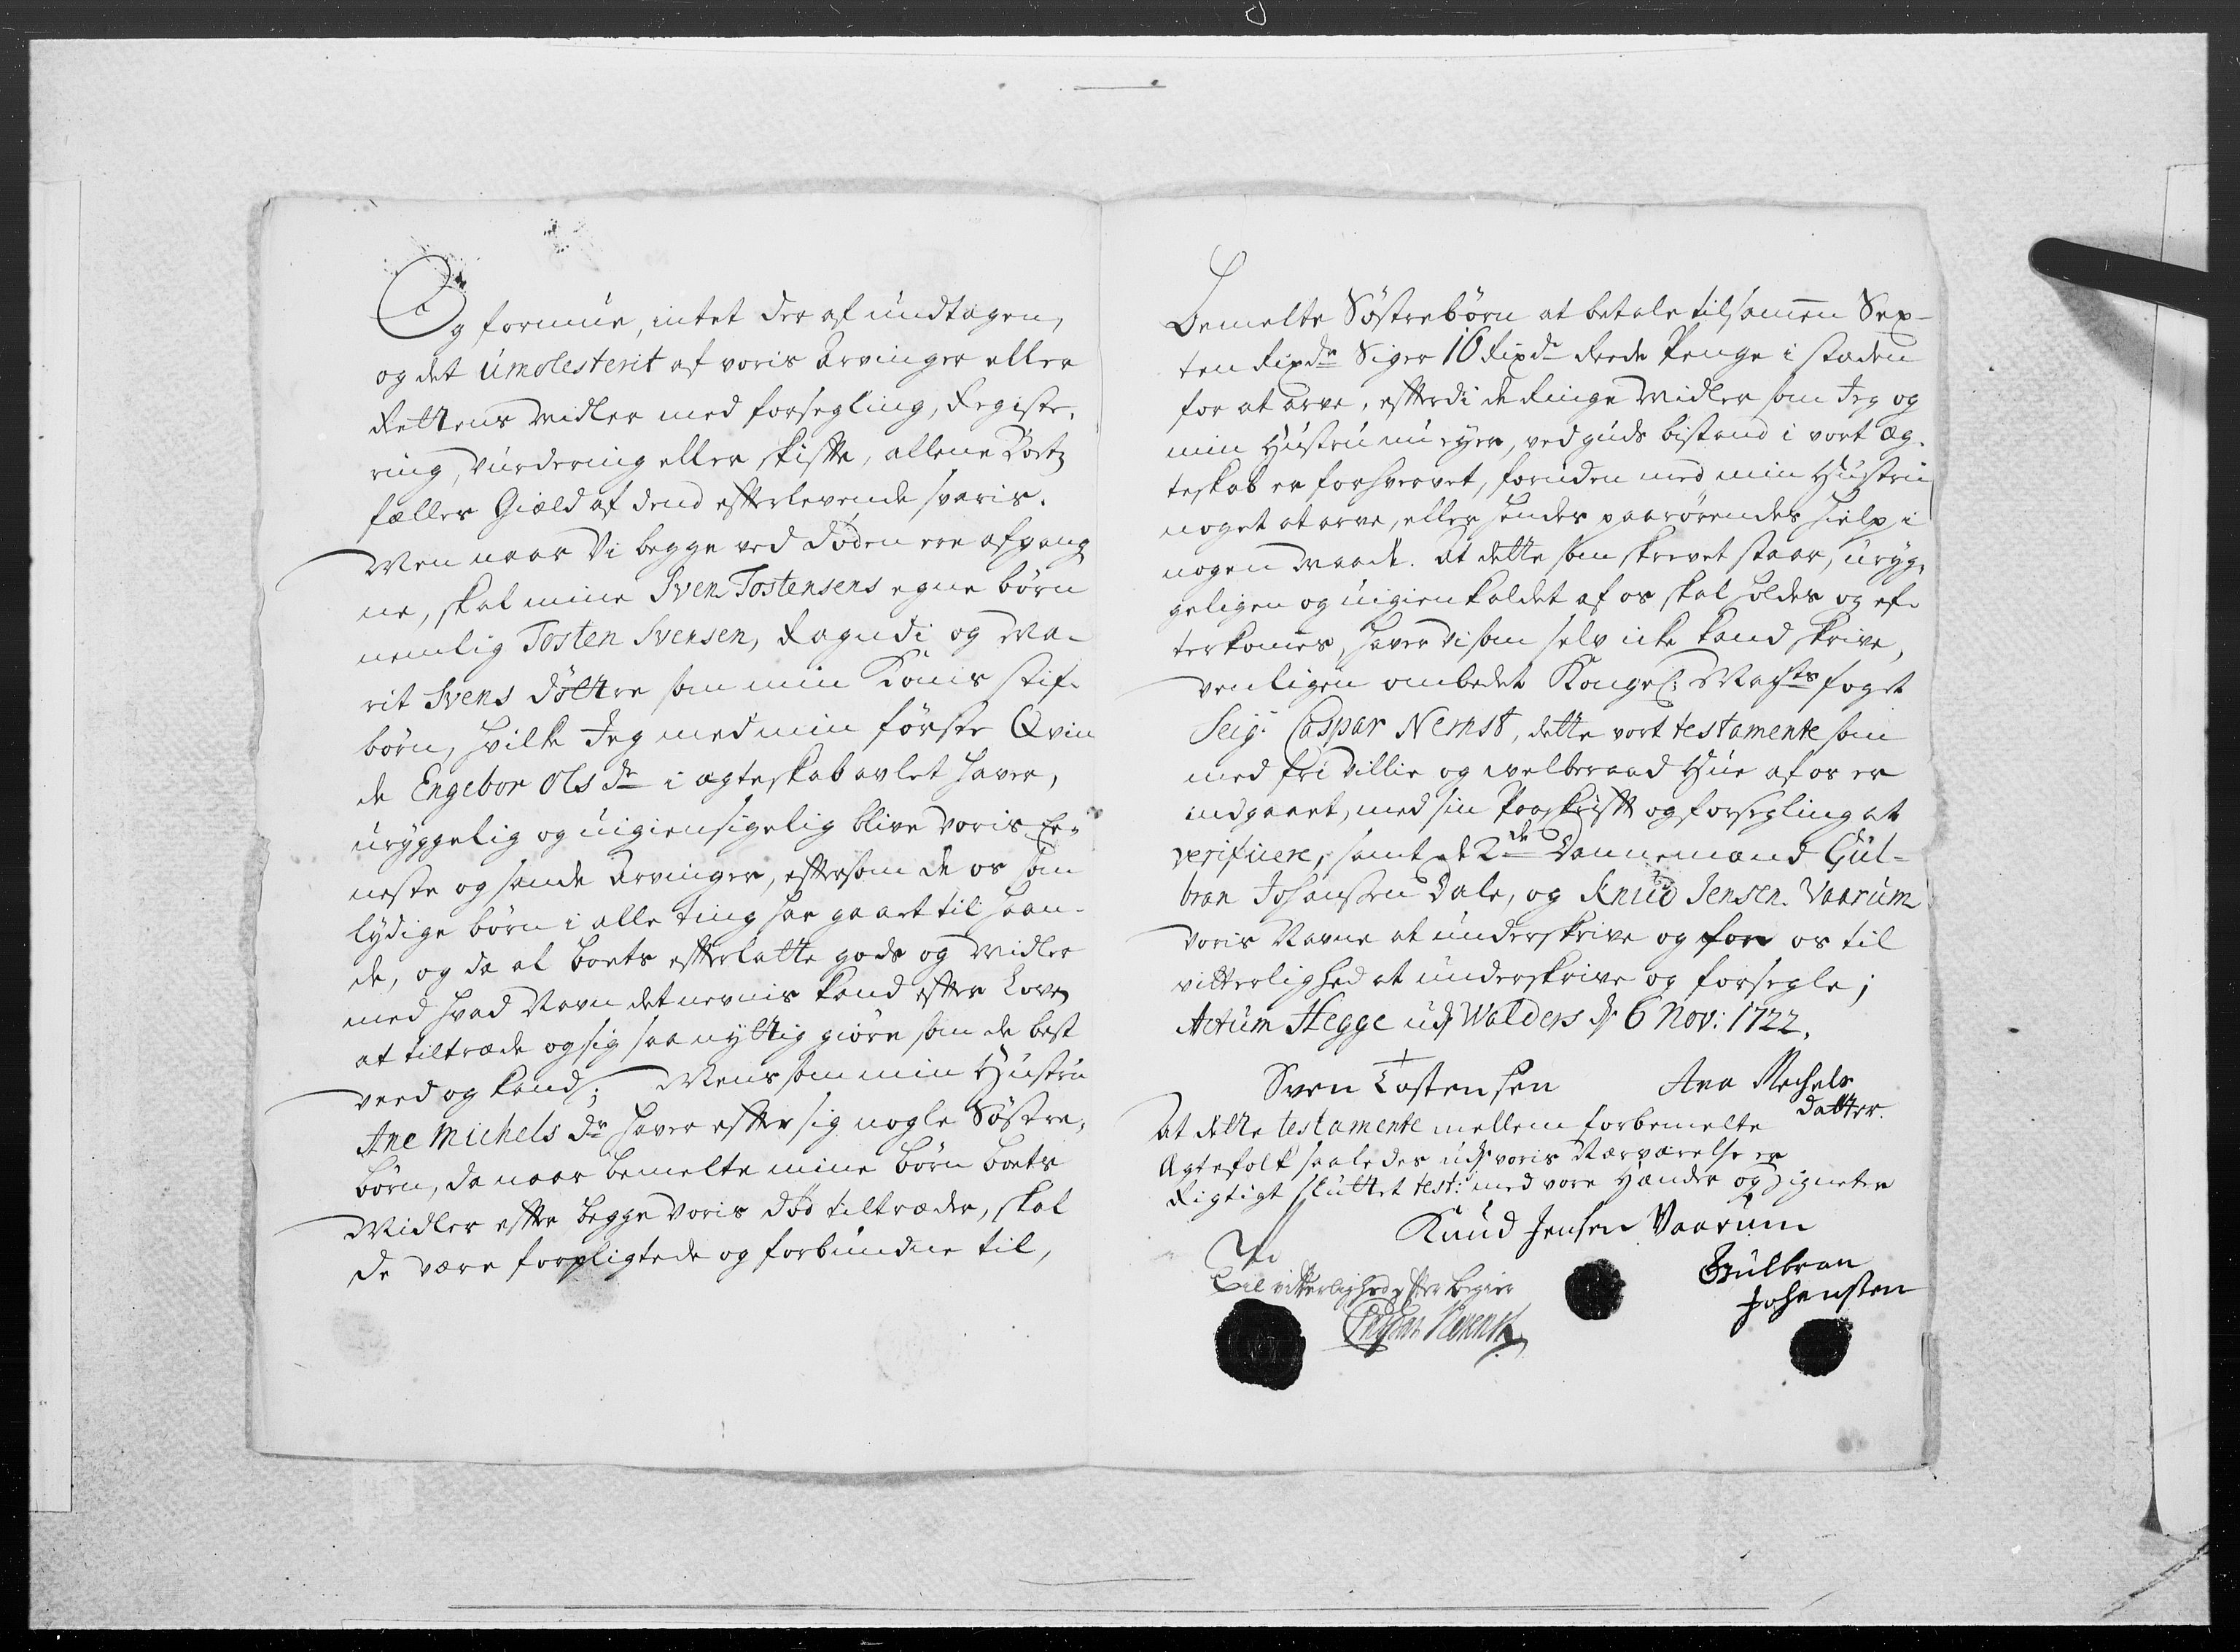 Og formue, intet der af undtagen,
og det umolesterit af voris Arvinger eller
Rettens Midler med forsegling, Registe-
ring, Vurdering eller skifte, allene Boets
fælles Gield af dend efterlevende svaris.
Men naar Vi begge ved Døden ere afgang
ne, skal mine Sven Tostensens egne børn
nemlig Tosten Svensen, Ragndi og Ma-
rit Svens Døttre som min Konis stif-
børn, hvilke Jeg med min første Qvin
de Engebor Ols dr i ægteskab avlet haver,
uryggelig og uigiensigelig blive Voris Ee-
neste og sande Arvinger, eftersom de os som
lydige børn i alle ting har gaaet til haan-
de, og da al Boets efterlatte gods og Midler
med hvad Navn det nevnis kand efter Loven
at tiltræde og sig saa nyttig giøre som de best
veed og kand; Mens som min Hustru
Ane Michels dr haver efter sig nogle Søstre-
børn, da naar bemelte mine børn boets
Midler efter begge Voris Død tiltræder, skal
de være forpligtede og forbundne til,
Bemelte Søstrebørn at betale tilsamen Sex-
ten Rixdr Siger 16 Rixdr Reede Penge i stæden
for at arve, efterdi de Ringe Midler som Jeg og
min Hustru nu eyer, ved Guds bistand i vort Æg-
teskab er forhvervet, foruden med min Hustru
noget at arve, eller hendes paarørendes hielp i
nogen Maade. At dette som skrevet staar, uryg-
geligen og uigienkaldet af os skal holdes og ef-
terkomes, haver Vi som selv icke kand skrive,
venligen ombedet Kongel: Mayts foget
Seig: Caspar Nernst, dette vort testamente som
med fri Villie og velberaad Hue af os er
indgaaet, med sin Paaskrift og forsegling at
verificere, samt de 2de Dannemænd Gul-
bran Johansen Dale, og Knud Jensen Vaarum
Voris Navne at underskrive og for os til
vitterlighed at underskrive og forsegle;
Actum Hegge udj Walders dj 6 Nov: 1722.
Sven Tostensen Ana Mechels
datter.
At dette testamente mellem forbemelte
Ægtefolk saaledes udj voris Nærværelse er
Rigtigt sluttet test: med vore Hænder og Signeter
Knud Jensen Vaarum
Til vitterlighed efter begier
Gulbran
Johansen
Caspar Nernst